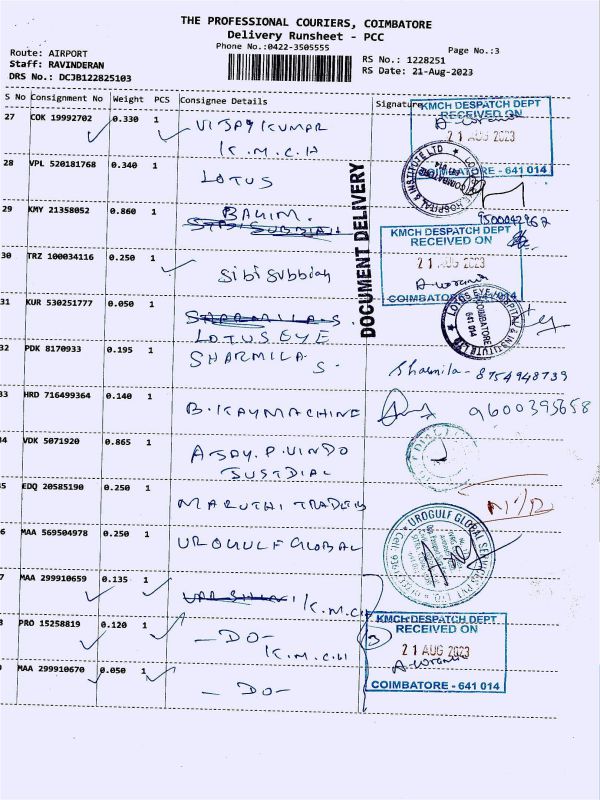 THE PROFESSIONAL COURIERS, COIMBATORE
Delivery Runsheet - PCC
Phone No.:0422-3505555
Page No.:3
Route: AIRPORT
Staff: RAVINDERAN
DRS No.: DCJB122825103
RS No.: 1228251
RS Date: 21-Aug-2023
S No Consignment No Weight PCS Consignee Details Signature
27 COK 19992702 0.330 1 VIJAY KUMAR
K.M.C.H
KMCH DESPATCH DEPT
RECEIVED ON
21 AUG 2023
COIMBATORE - 641 014
28 VPL 520181768 0.340 1 LOTUS
DOCUMENT DELIVERY
29 KMY 21358052 0.860 1
SUBBIAH
KMCH DESPATCH DEPT
RECEIVED ON
21 AUG 2023
COIMBATORE - 641 014
30 TRZ 100034116 0.250 1 Sibi Subbiah
31 KUR 530251777 0.050 1 SHARMILA-S
LOTUS EYE
LOTUS EYE HOSPITAL & INSTITUTE LTD
COIMBATORE
641 014
32 PDK 8170933 0.195 1 SHARMILA-
S.
Sharmila- 8754948739
33 HRD 716499364 0.140 1 B. KAYMACHINE
9600395658
34 VDK 5071920 0.865 1 AJAY.P.VINDO
JUSTDIAL
35 EDQ 20585190 0.250 1 MARUTHI TRADERS
36 MAA 569504978 0.250 1 UROGULF GLOBAL
UROGULF GLOBAL SERVICES PVT LTD
37 MAA 299910659 0.135 1 K.M.CH
38 PRO 15258819 0.120 1 -DO-
K.M.C.H
3
KMCH DESPATCH DEPT
RECEIVED ON
21 AUG 2023
COIMBATORE - 641 014
39 MAA 299910670 0.050 1 -DO-